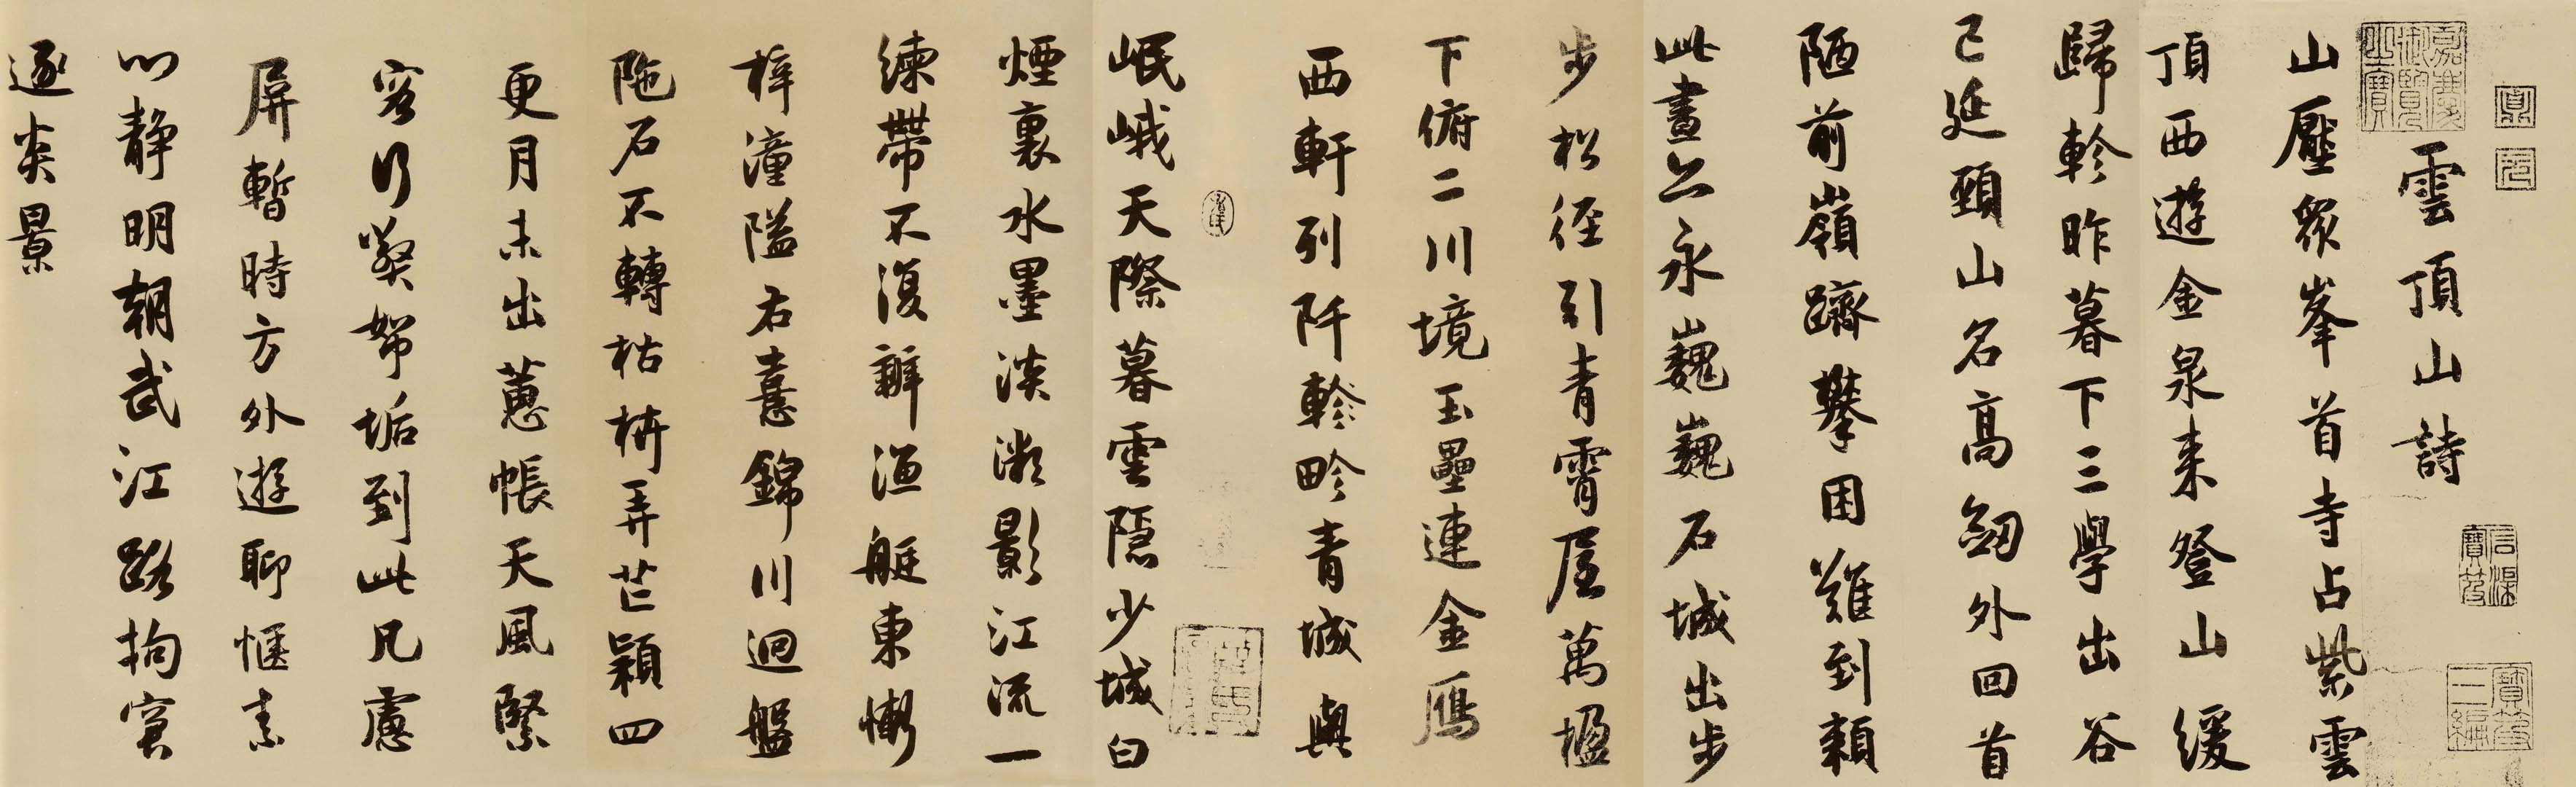 嘉慶御覽之寶
石渠寶笈
寶笈三編
雲頂山詩
山壓衆峯首寺占紫雲
頂西遊金泉来登山緩
歸軫昨暮下三學出谷
已延頸山名高劒外回首
陋前嶺躋攀困難到頼
此晝亦永巍巍石城出步
步松径引青霄屋萬楹
下俯二川境玉壘連金鴈
西軒列阡軫畛青城與
岷峨天際暮雲隱少城白
煙裏水墨淡微影江流一
練帶不復辨漁艇東慚
梓潼隘右憙錦川迴盤
陁石不轉枯枿弄芒穎四
更月未出蕙帳天風緊
客行垢到此凡慮
屏暫時方外遊聊愜素
心静明朝武江路拘窘
逐炎景